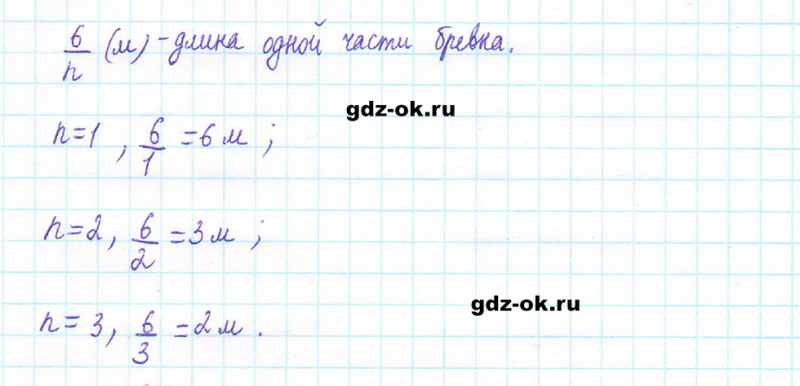 6/n (м) - длина одной части бревна.
gdz-ok.ru
n=1, 6/1 = 6 м ;
n=2, 6/2 = 3 м ;
gdz-ok.ru
n=3, 6/3 = 2 м .